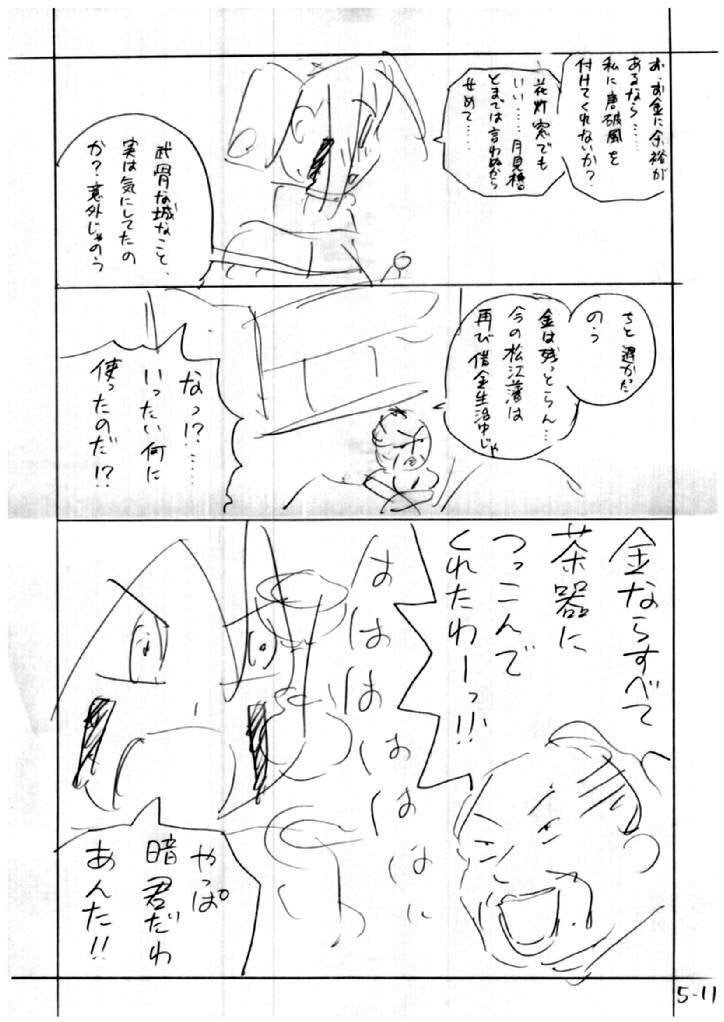 お、お金に余裕が
あるなら……
私に唐破風を
付けてくれないか?
花灯窓でも
いい……月見櫓
とまでは言わぬから
せめて……
武骨な城なこと、
実は気にしてたの
か?意外じゃのう
ちと遅かった
のう
金は残っとらん…
今の松江藩は
再び借金生活中じゃ
なっ!?……
いったい何に
使ったのだ!?
金ならすべて
茶器に
つっこんで
くれたわーっ!!
はははははは
やっぱ
暗君だわ
あんた!!
5-11